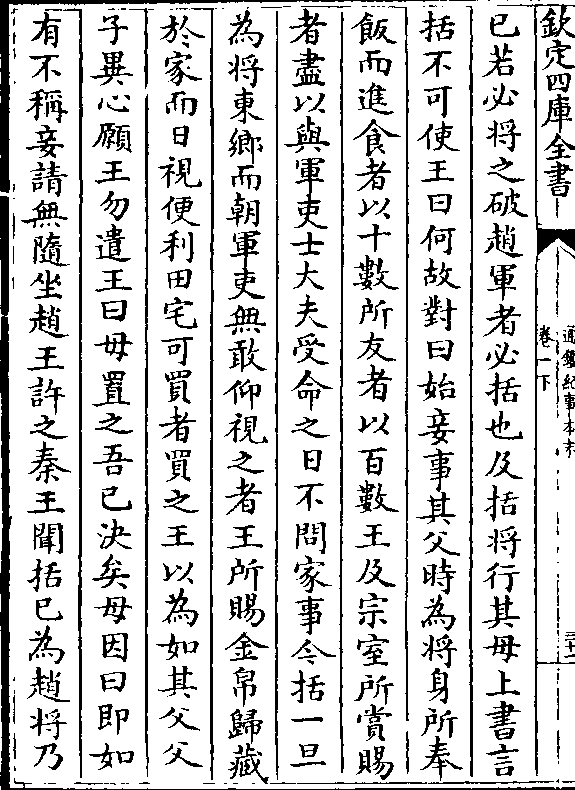 欽定四庫全書
通鑑紀事本末
卷一下
三十二
已若必将之破趙軍者必括也及括将行其母上書言
括不可使王曰何故對曰始妾事其父時為将身所奉
飯而進食者以十數所友者以百數王及宗室所賞賜
者盡以與軍吏士大夫受命之日不問家事今括一旦
為将東鄉而朝軍吏無敢仰視之者王所賜金帛歸藏
於家而日視便利田宅可買者買之王以為如其父父
子異心願王勿遣王曰母置之吾已決矣母因曰即如
有不稱妾請無隨坐趙王許之秦王聞括已為趙将乃